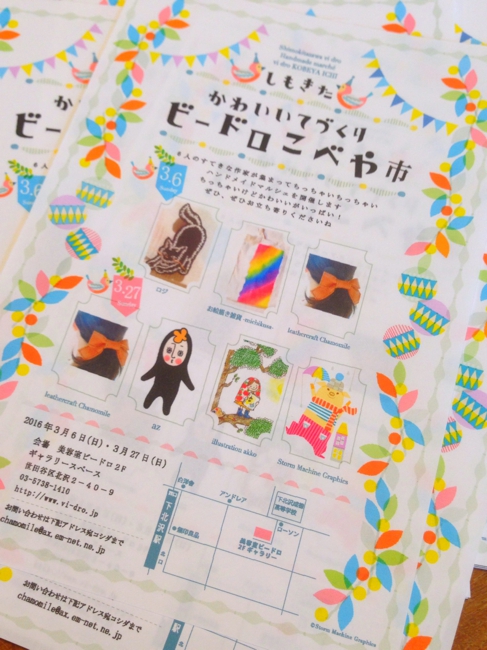 Shimokitazawa vi dro
Handmade marché
vi dro KOBEYA ICHI
しもきた
かわいいてづくり
ビードロこべや市
6人のすてきな作家が集まってもっちゃいもっちゃい
ハンドメイドマルシェを開催します
ちっちゃいけどかわいいがいっぱい!
ぜひ、ぜひお立ち寄りくださいね
3.6
Sunday
ロジ
お絵描き雑貨 -michikusa-
leathercraft Chamomile
3.27
Sunday
leathercraft Chamomile
az
illustration akko
Storm Machine Graphics
2016年3月6日(日)・3月27日(日)
会場 美容室ビードロ2F
ギャラリースペース
世田谷区北沢2-40-9
03-5738-1410
http://www.vi-dro.jp
お問い合わせは下記アドレス宛コシダまで
chamomile@ax.em-net.ne.jp
下北沢駅
北口
白洋舎
アンドレア
下北沢成徳
高等学校
無印良品
ローソン
美容室ビードロ
2Fギャラリー
©Storm Machine Graphics
お問い合わせは下記アドレス宛コシダまで
chamomile@ax.em-net.ne.jp
駅
北口
©Storm Machine Graphics
かわ
ビー
6人
3.6